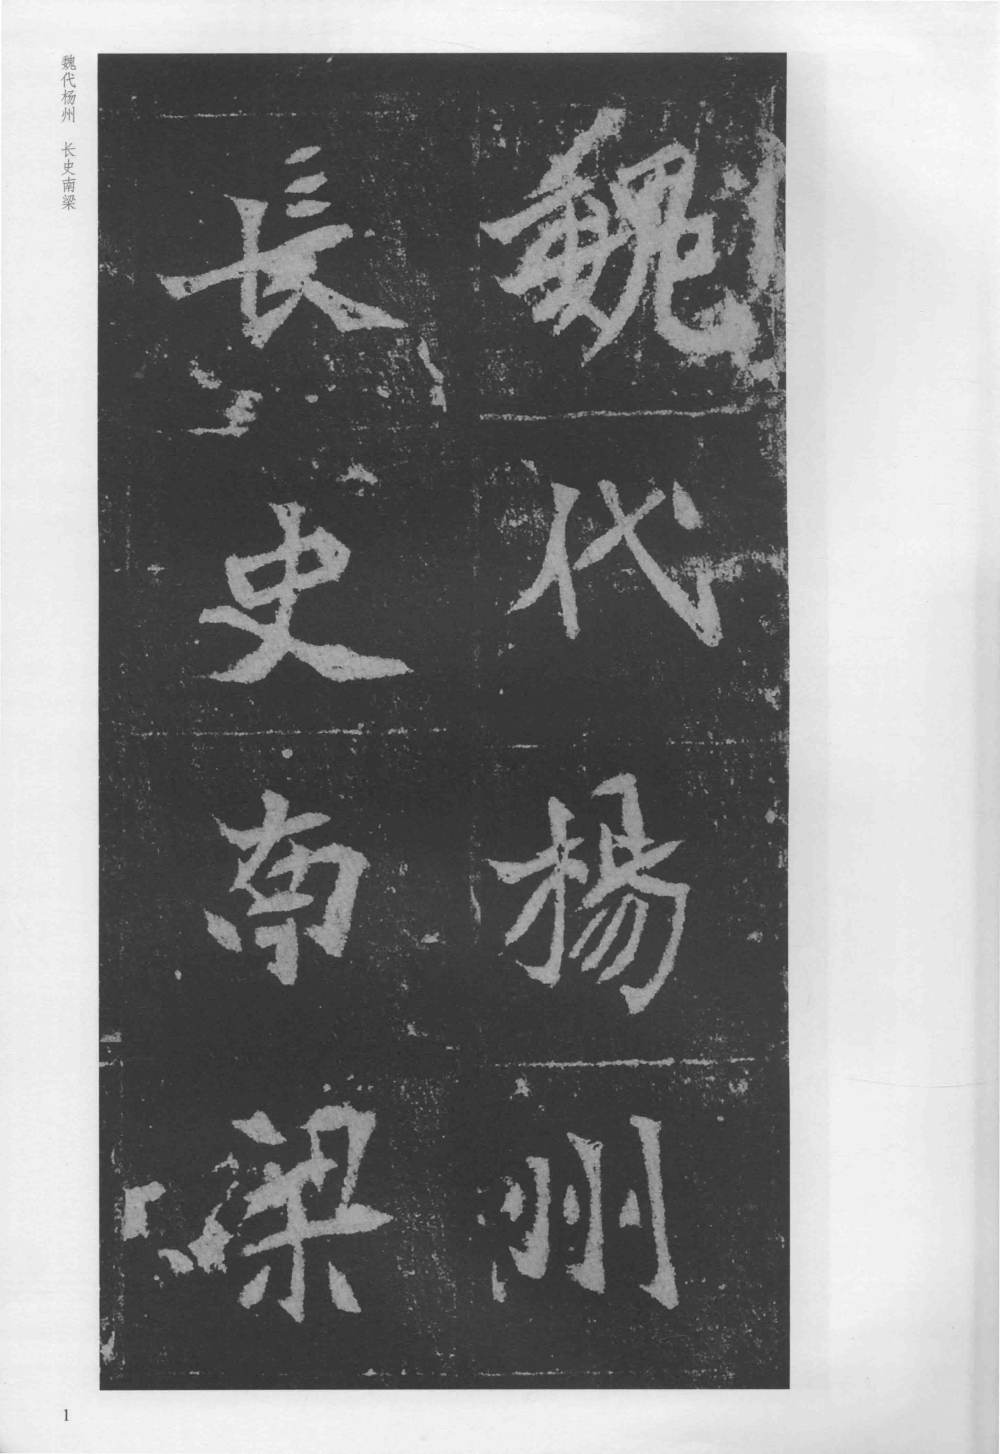 魏代楊州
長史南梁
魏代杨州　长史南梁
1